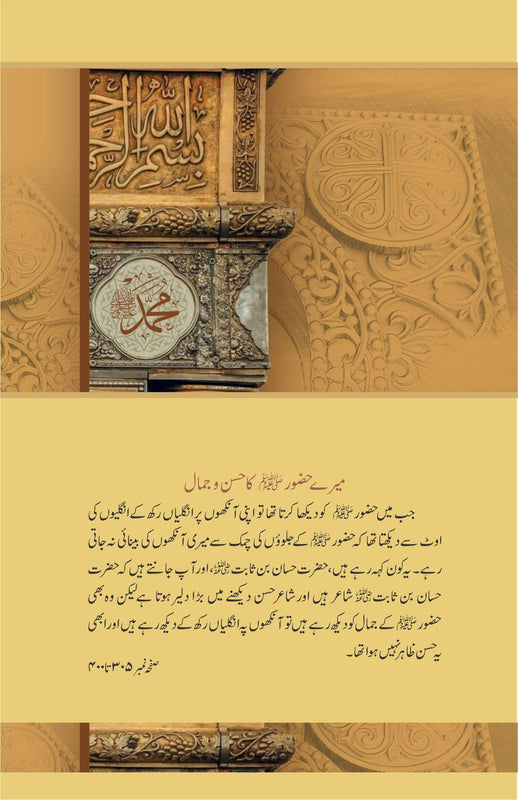 بسم الله الرحم
محمد ﷺ
میرے حضور ﷺ کا حسن و جمال
جب میں حضور ﷺ کو دیکھا کرتا تھا تو اپنی آنکھوں پر انگلیاں رکھ کے انگلیوں کی
اوٹ سے دیکھتا تھا کہ حضور ﷺ کے جلوؤں کی چمک سے میری آنکھوں کی بینائی نہ جاتی
رہے۔ یہ کون کہہ رہے ہیں، حضرت حسان بن ثابت رضی اللہ عنہ، اور آپ جانتے ہیں کہ حضرت
حسان بن ثابت رضی اللہ عنہ شاعر ہیں اور شاعر حسن دیکھنے میں بڑا دلیر ہوتا ہے لیکن وہ بھی
حضور ﷺ کے جمال کو دیکھ رہے ہیں تو آنکھوں پہ انگلیاں رکھ کے دیکھ رہے ہیں اور ابھی
یہ حسن ظاہر نہیں ہوا تھا۔
صفحہ نمبر ۳۰۵ تا ۴۰۰